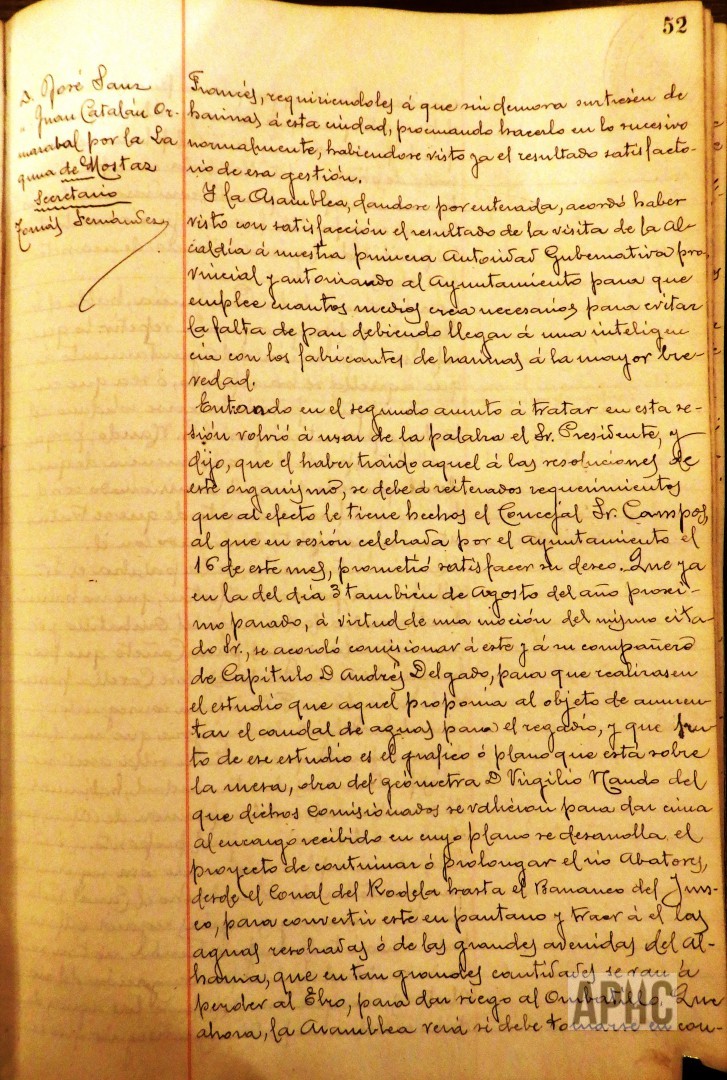 52
D. José Sanz
" Juan Catalán Or-
marabal por la La
guna de Mostaz
Secretario
Tomás Fernández
Francés, requiriendoles á que sin demora surtiesen de
harinas á esta ciudad, procurando hacerlo en lo sucesivo
normalmente, habiendose visto ya el resultado satisfacto-
rio de esa gestión.
Y la Asamblea, dandose por enterada, acordó haber
visto con satisfacción el resultado de la visita de la Al-
caldía á nuestra primera Autoridad Gubernativa pro-
vincial y autorizando al Ayuntamiento para que
emplee cuantos medios crea necesarios para evitar
la falta de pan debiendo llegar á una inteligen
cia con los fabricantes de harinas á la mayor bre-
vedad.
Entrando en el segundo asunto á tratar en esta se-
sión volvió á usar de la palabra el Sr. Presidente, y
dijo, que el haber traido aquel á las resoluciones de
este organismo, se debe á reiterados requerimientos
que al efecto le tiene hechos el Concejal Sr. Campos,
al que en sesión celebrada por el ayuntamiento el
16 de este mes, prometió satisfacer su deseo. Que ya
en la del día 3 también de Agosto del año proxi-
mo pasado, á virtud de una moción del mismo cita-
do Sr., se acordó comisionar á este y á su compañero
de Capítulo D Andrés Delgado, para que realizasen
el estudio que aquel proponía al objeto de aumen-
tar el caudal de aguas para el regadío, y que fru-
to de ese estudio es el grafico ó plano que está sobre
la mesa, obra del geómetra D Virgilio Nando del
que dichos comisionados se valieron para dar cima
al encargo recibido en cuyo plano se desarrolla el
proyecto de continuar ó prolongar el rio Abatores,
desde el Conal del Rodela hasta el Barranco del Jun-
co, para convertir este en pantano y traer á él las
aguas resobradas ó de las grandes avenidas del Al-
hama, que en tan grandes cantidades se van á
perder al Ebro, para dar riego al Ombatillo. Que
ahora, la Asamblea verá si debe tomarse en con-
APHC